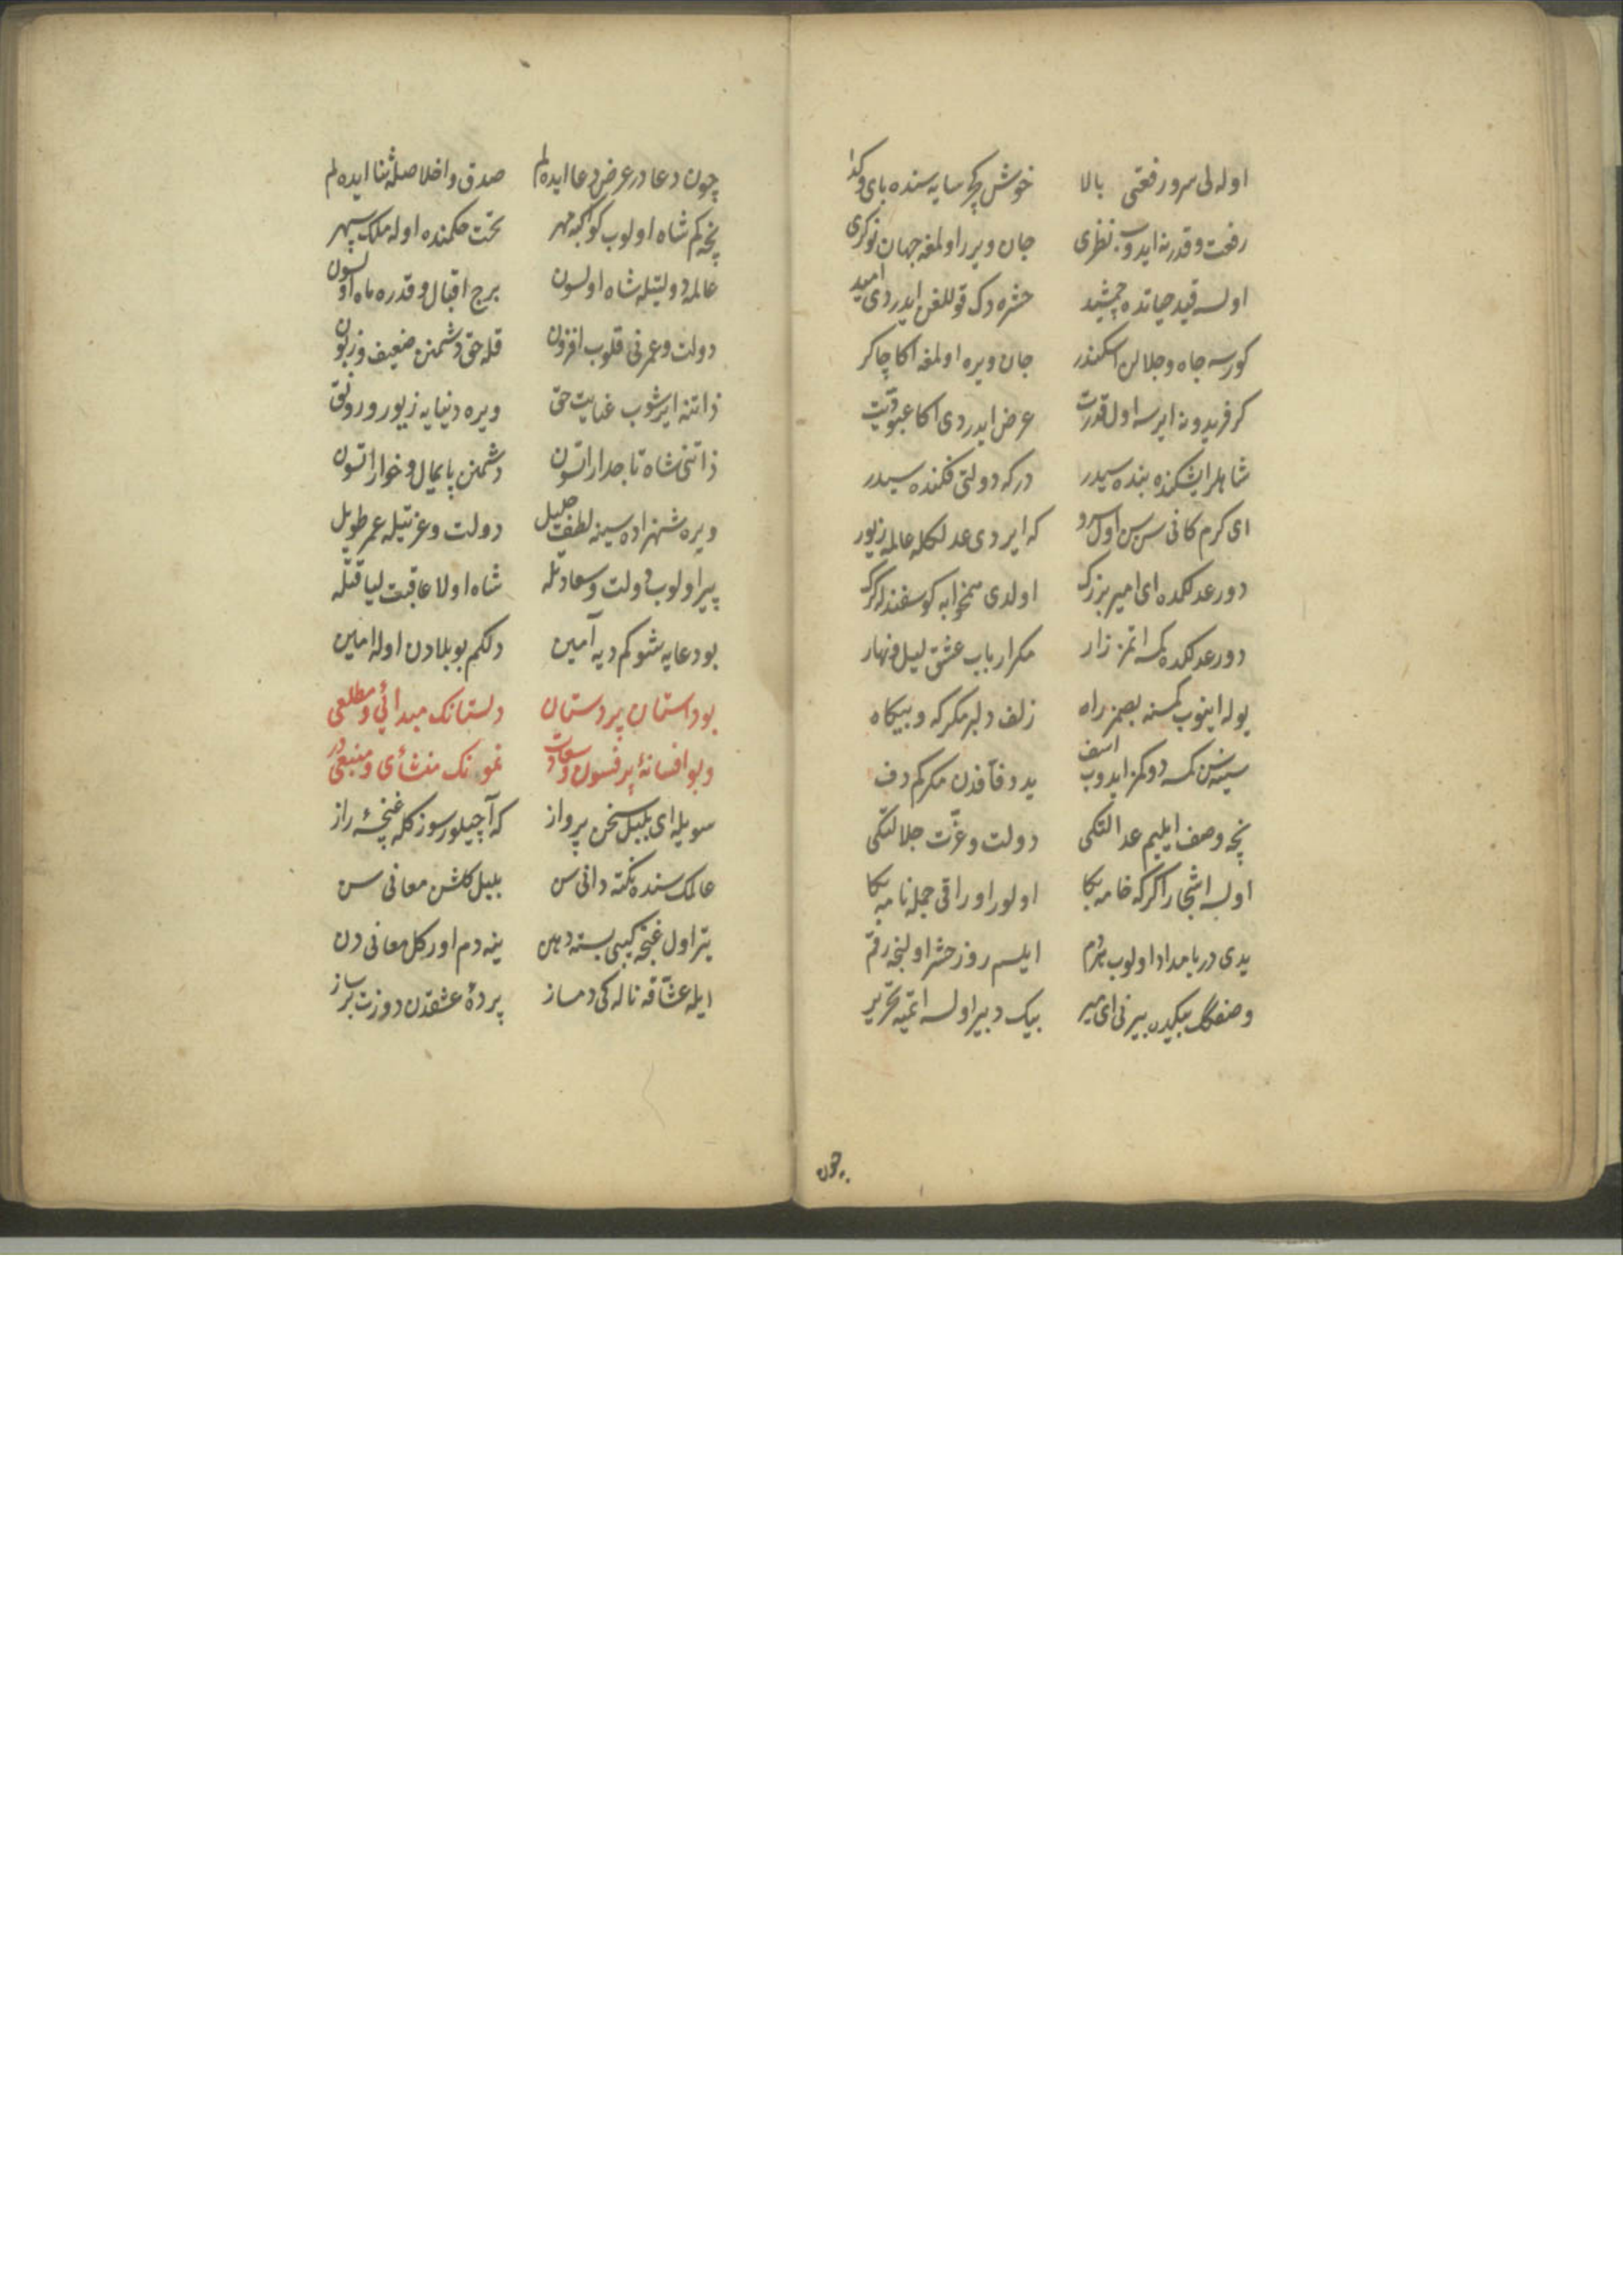 اوله لی سرو رفعتی بالا خوش کچر سایه سنده بای و کدا
رفعت و قدرنه ایدوب نظری جان ویرر اولمغه جهان نوکری
اولسه قید حیاتده جمشید حشره دک قوللغن ایدردی امید
کورسه جاه و جلالن اسکندر جان ویره اولمغه اکا چاکر
کر فریدونه ایرسه اول قدرت عرض ایدردی اکا عبودیت
شاهلر ایشکنده بنده سیدر درکه دولتی فکنده سیدر
ای کرم کانی سن سن اول سرور که ایردی عدلکله عالمه زیور
دور عدلکده ای امیر بزرک اولدی همخوابه کوسفندله کرک
دور عدلکده کمسه اتمز زار مکر ارباب عشق لیل و نهار
یوله اینوب کمسنه بصمز راه زلف دلبر مکر که و بیکاه
سینه سن کمسه دوکمز ایدوب اسف ید دفافدن مکر کم دف
نجه وصف ایلیم عدالتکی دولت و عزت جلالتکی
اولسه اشجار اکر که خامه بکا اولور اوراقی جمله نامه بکا
یدی دریا مداد اولوب هردم ایلسم روز حشر اولنجه رقم
وصفکک بیکیدن بیرنی ای میر بیک دبیر اولسه اتمیه تحریر
چون
چون دعادر عرض دعا ایده لم صدق و اخلاصله ثنا ایده لم
نجه کم شاه اولوب کواکبه مهر تحت حکمنده اوله ملک سپهر
عالمه دولتیله شاه اولسون برج اقبال و قدره ماه اولسون
دولت و عمرنی قلوب افزون قله حق دشمنن ضعیف و زبون
ذاتنه ایرشوب عنایت حق ویره دنیایه زیور و رونق
ذاتنی شاه تاجدار اتسون دشمنن پایمال و خوار اتسون
ویره شهزاده سینه لطف جلیل دولت و عزتیله عمر طویل
پیر اولوب دولت و سعادتله شاه اولا عاقبت لیاقتله
بو دعایه شو کم دیه آمین دلکم بو بلادن اوله امین
بو داستان پر دستان دلستانک مبدائی و مطلعی
و بو افسانهٔ پر فسون و سعادت نمونک منشأی و منبعی در
سویله ای بلبل سخن پرواز که آچیلور سوزکله غنچهٔ راز
عالمک سنده نکته دانی سن بلبل کلشن معانی سن
یتر اول غنچه کیبی بسته دهن ینه دم اور کل معانی دن
ایله عشاقه ناله کی دمساز پردهٔ عشقدن دوزت بر ساز